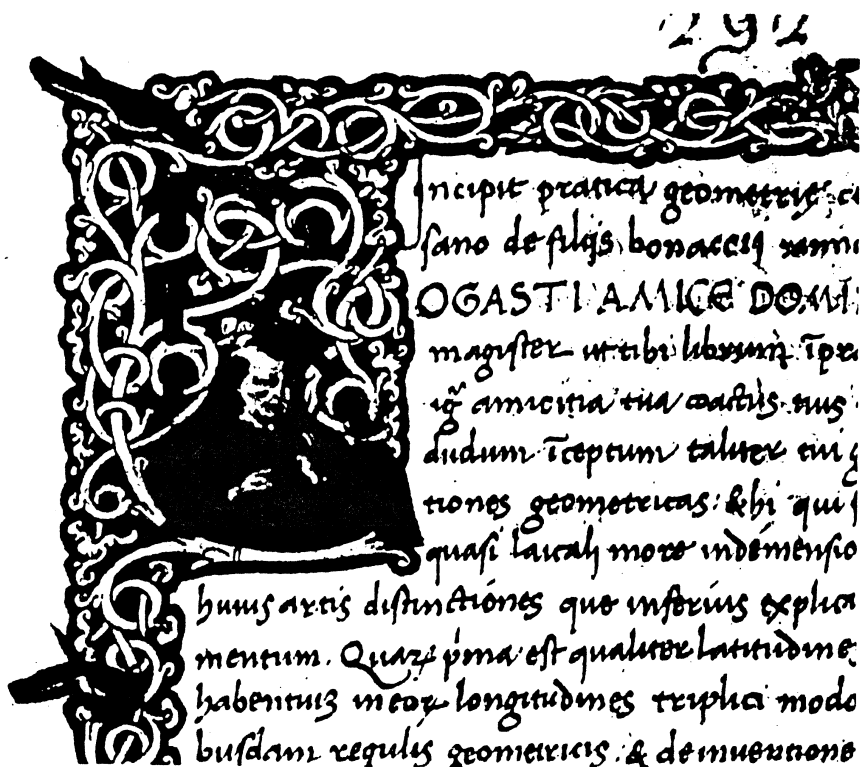 292
Incipit pratica geometrie
sano de filijs bonaccij
OGASTI AMICE DOMI
magister ut tibi librum īpra
amicitia tua coactus tuis
dudum īceptum taliter tui g
tiones geometricas: & hi qui
quasi laicali more in dēmensio
huius artis distinctiones que inferius explica
mentum. Quarū pͥma est qualiter latitudine
habentiuȝ in eoꝝ longitudines triplici modo
busdam regulis geometricis. & de inuentione